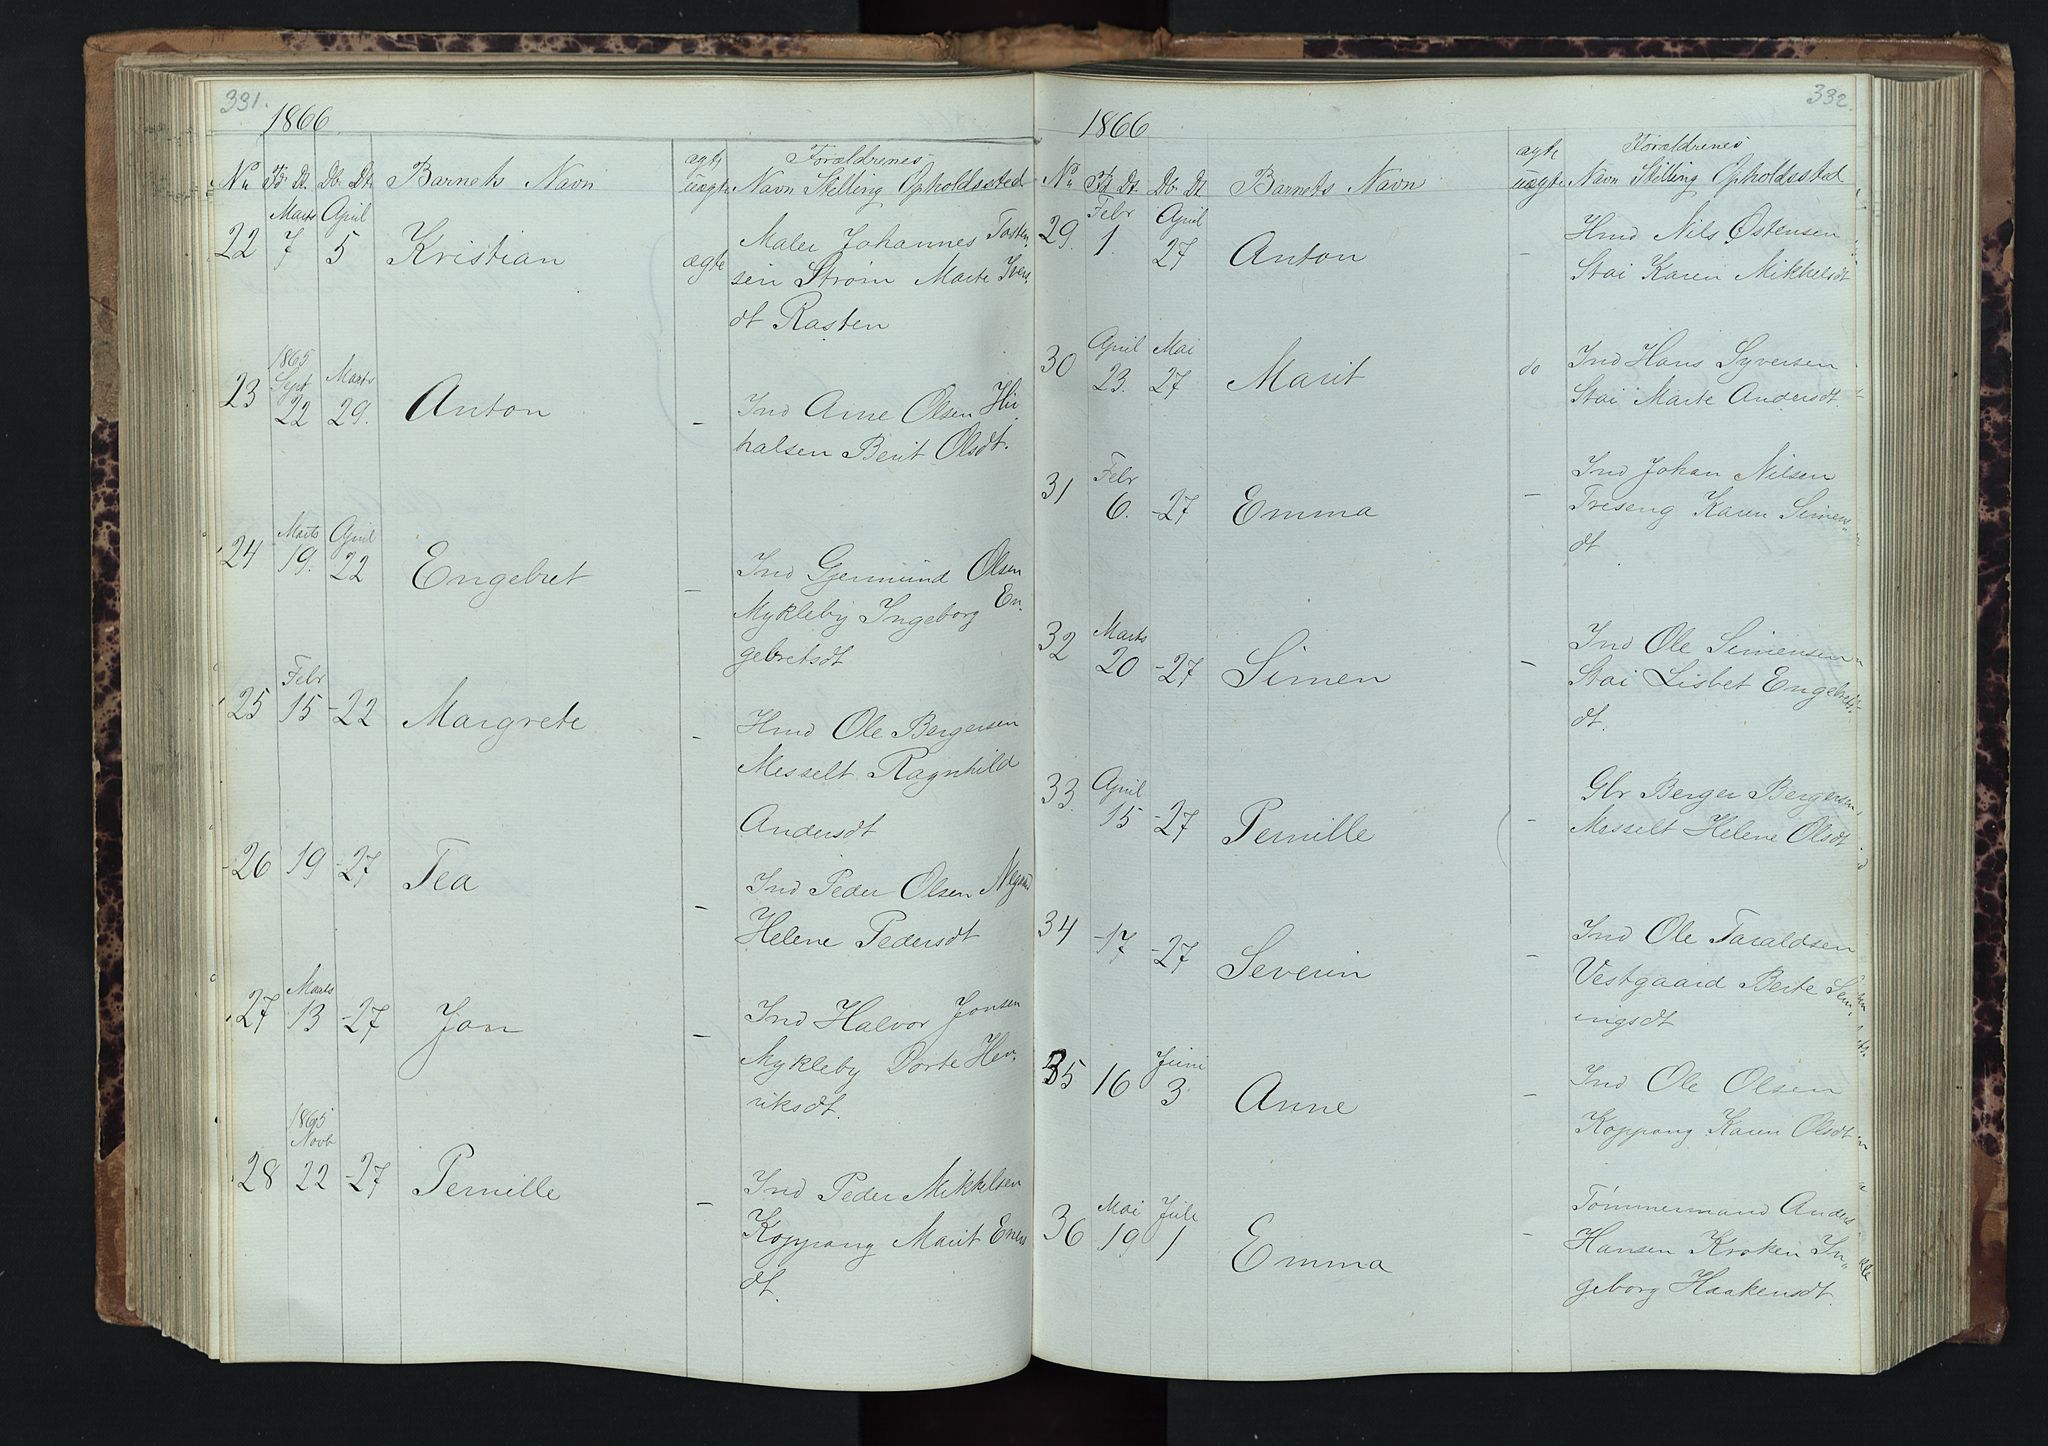 331.
1866
Nr. Fd. Dt. Db. Dt. Barnets Navn ægte uægte Forældrenes Navn Stilling Opholdssted
Marts April
22 7 5 Kristian ægte Maler Johannes Tosten,
sen Strøm Marte Ivers
dt Rasten
1865
Sept Marts
23 22 29. Anton - Ind Arne Olsen
halsen Berit Olsdt.
Marts April
24 19. 22 Engebret - Ind Gjermund Olsen
Mykleby Ingeborg En,
gebretsdt
Febr
25 15 -22 Margrete - Hmd Ole Bergersen
Messelt Ragnhild
Andersdt
26 19 -27 Tea - Ind Peder Olsen
Helene Pedersdt
Marts
27 13 -27 Jon - Ind Halvor Jonsen
Mykleby Dorte Hen,
riksdt.
1865
Novb
28 22 -27 Pernille - Ind Peder Mikkelsen
Koppang Marit Enens
dt.
332.
1866
Nr. Fd. Dt. Db. Dt. Barnets Navn ægte uægte Forældrenes Navn Stilling Opholdssted
Febr April
29. 1. 27 Anton - Hmd Nils Østensen
Stai Karen Mikkelsdt
April Mai
30 23. 27 Marit do Ind Hans Syversen
Stai Marte Andersdt.
Febr
31 6. -27 Emma - Ind Johan Nilsen
Treseng Karen Simens,
dt
Marts
32 20 -27 Simen - Ind Ole Simensen
Stai Lisbet Engebrets,
dt.
April
33. 15 -27 Pernille - Gbr Berger Bergersen
Messelt Helene Olsdt
34 -17 -27 Severin - Ind Ole Taraldsen
Vestgaard Berte Sem,
ingsdt
Juni
35 16 3 Anne - Ind Ole Olsen
Koppang Karen Olsdt
Mai Juli
36 19 1 Emma - Tømmermand Anders
Hansen Kroken In,
geborg Haakensdt.